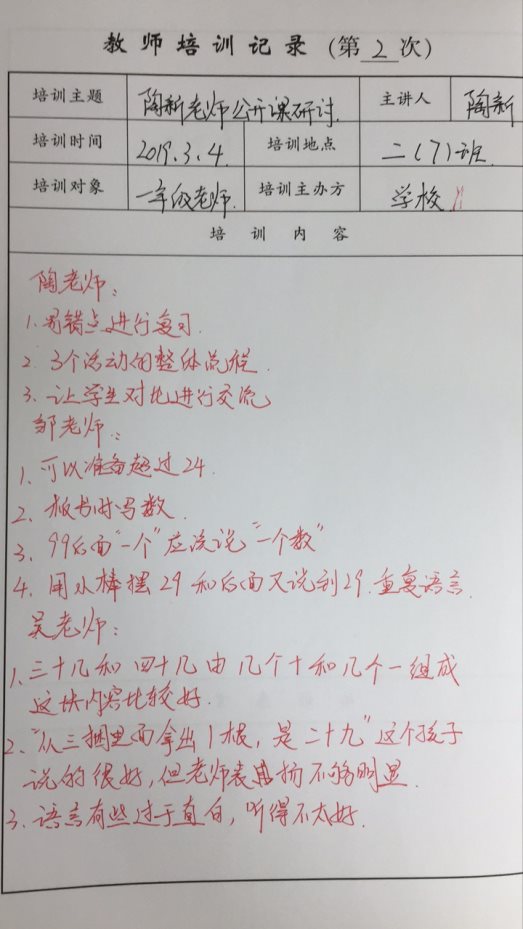 教师培训记录（第2次）
培训主题 陶新老师公开课研讨. 主讲人 陶新
培训时间 2019.3.4. 培训地点 二(7)班.
培训对象 一年级老师. 培训主办方 学校
培训内容
陶老师：
1.易错点进行复习.
2.3个活动的整体流程.
3.让学生对比进行交流
邹老师：
1、可以准备超过24.
2、板书时写数.
3、99后面“一个”应该说“一个数”
4、用小棒摆29和后面又说到29.重复语言.
吴老师：
1、三十几和四十几由几个十和几个一组成
这块内容比较好.
2、“从三捆里面拿出1根，是二十九”这个孩子
说的很好，但老师表扬不够明显.
3、语言有些过于直白，听得不太好.